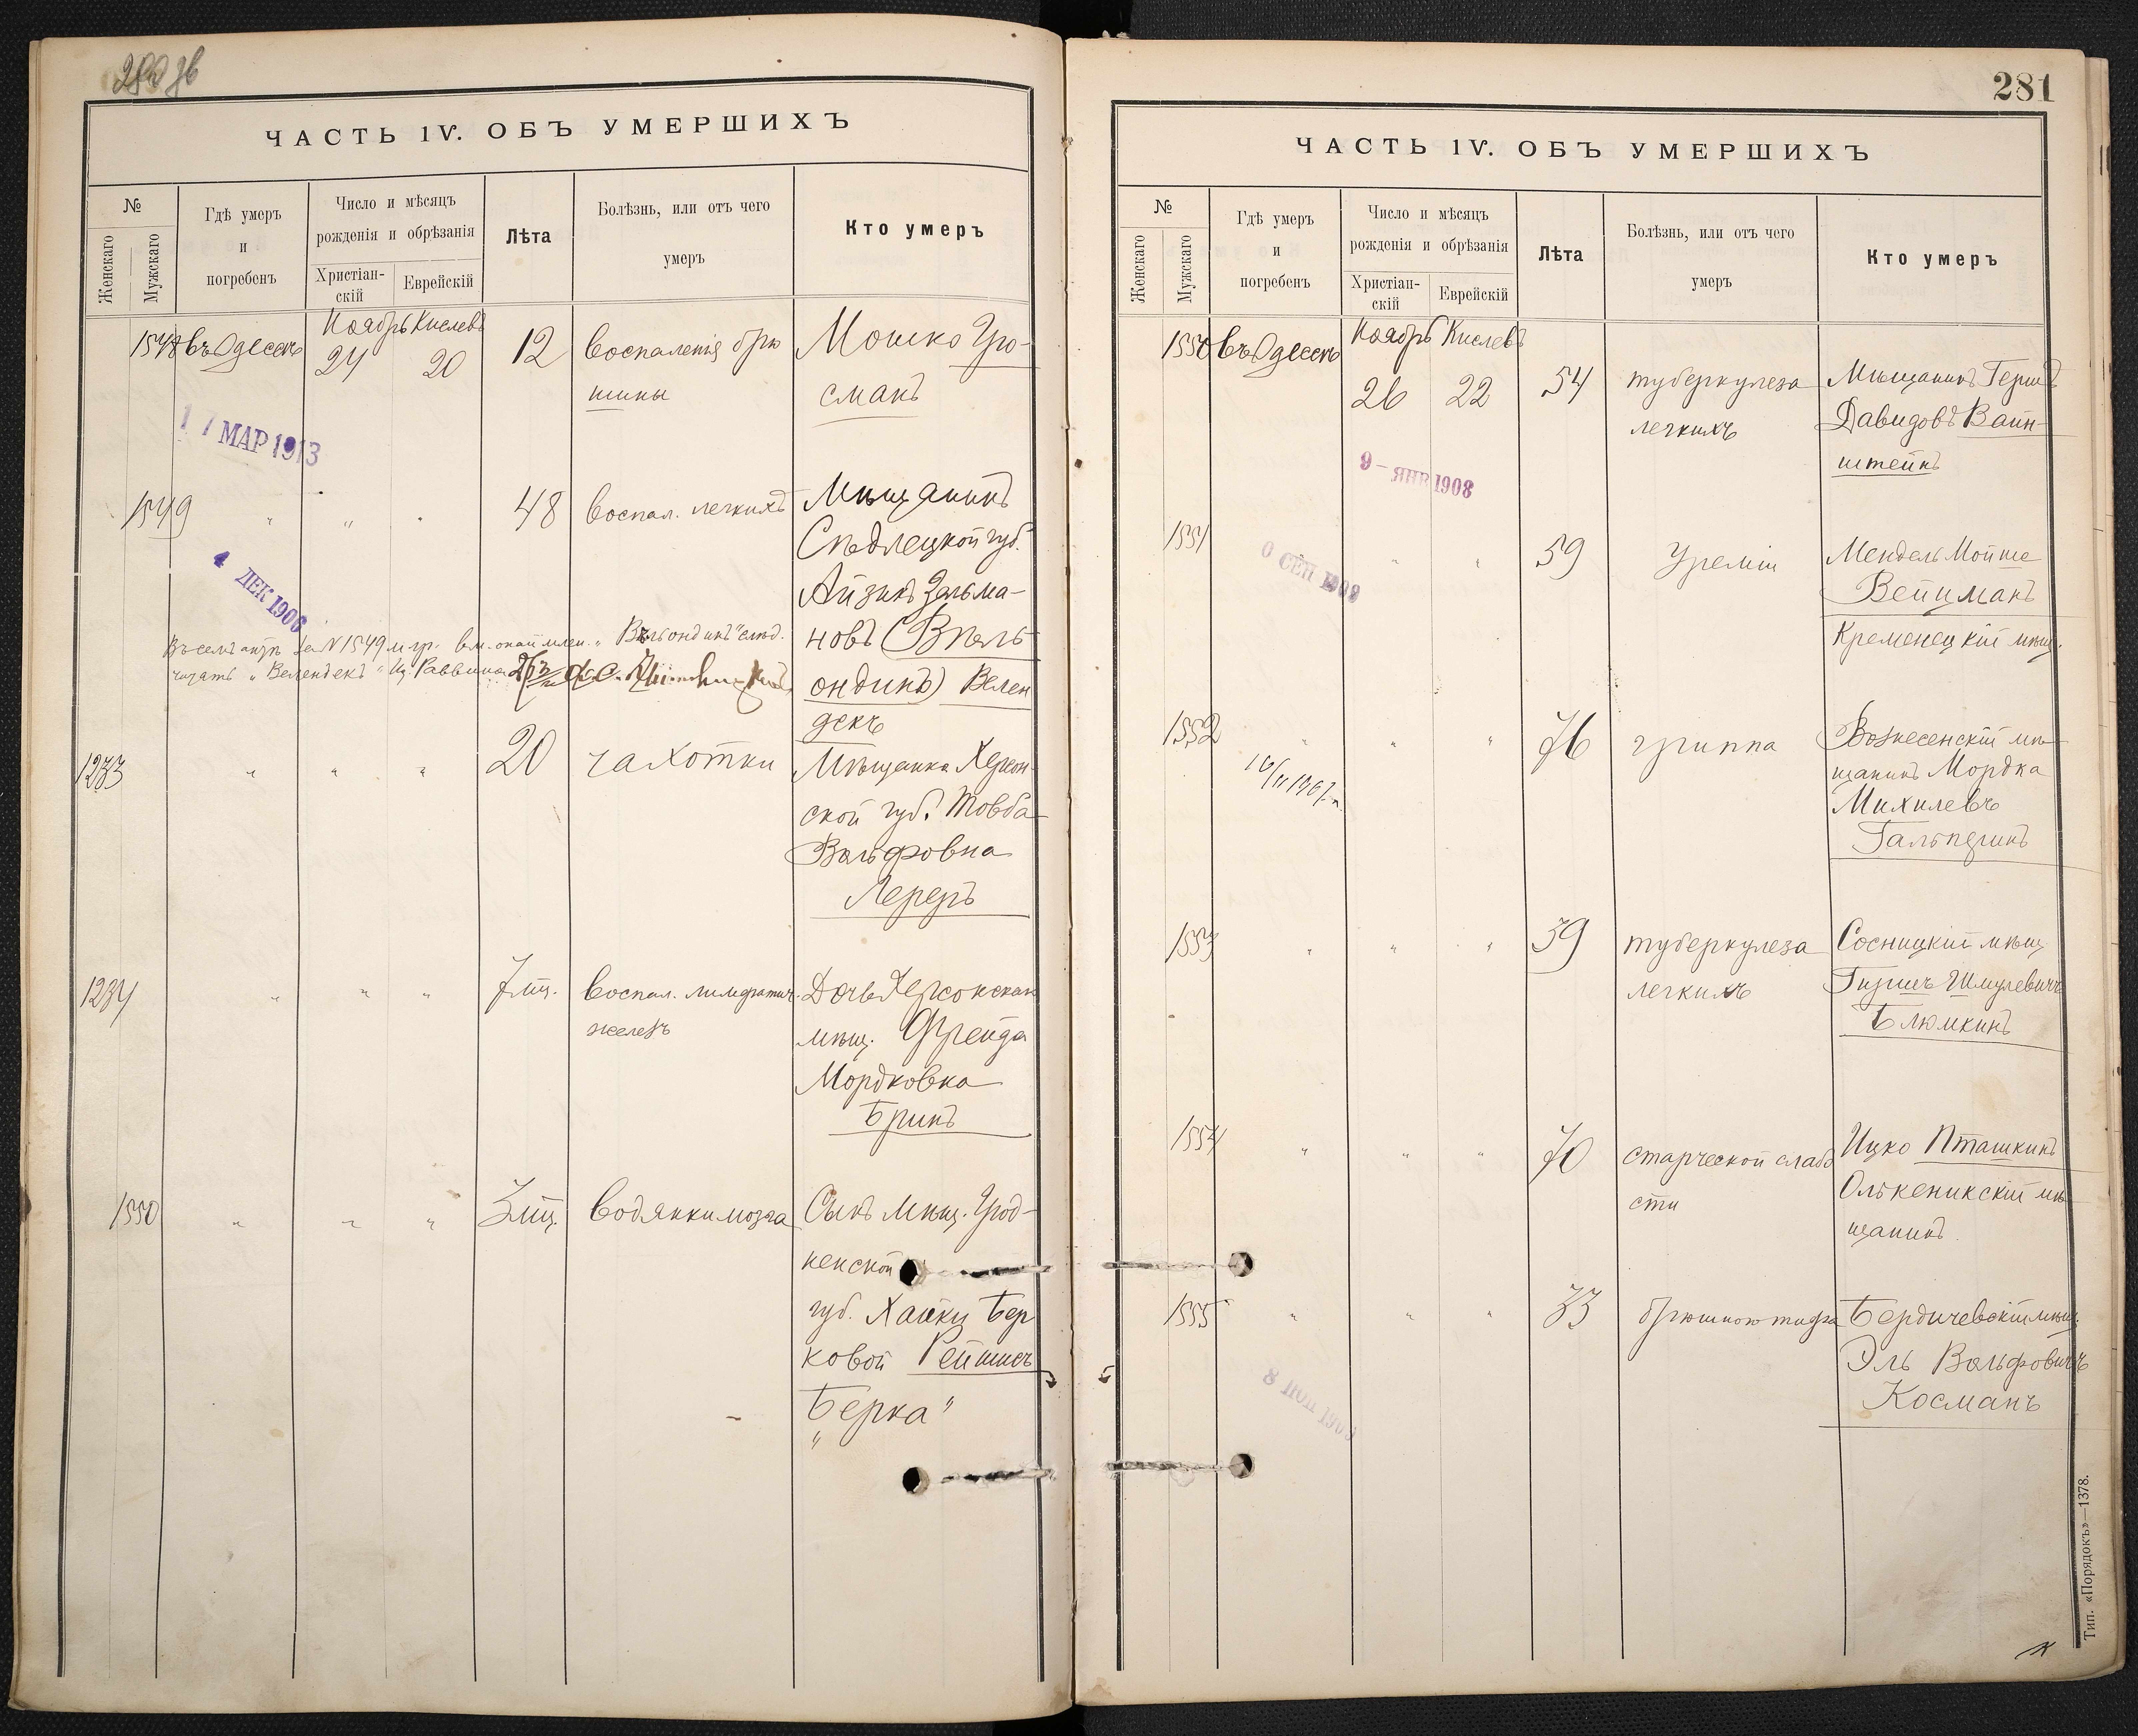 ЧАСТЬ IV. ОБЪ УМЕРШИХЪ
№
Женскаго
Мужскаго
Гдѣ умеръ
и
погребенъ
Число и мѣсяцъ
рожденія и обрѣзанія
Христіан-
скій
Еврейскій
Лѣта
Болѣзнь, или отъ чего
умеръ
Кто умеръ
Ноябрь Кислевъ
1548 въ Одессѣ 24 20 12 воспаленія брю Мошко Гро-
шины сманъ
17 МАР 1913
1549 " " " 48 воспал. легкихъ Мѣщанинъ
Сѣдлецкой губ.
4 ДЕК 1906
Айзикъ Зельма-
новъ (Вѣль-
Въ семъ актѣ за № 1549 м. гр. вм. фамиліи " Вѣльондикъ" слѣд.
читать " Велендекъ" Раввина
ондикъ) Велен
декъ
1233 " " " 20 чахотки Мѣщанка Херсон-
ской губ. Товба
Вольфовна
Лереръ
1234 " " " 7 мц. воспал. лимфатич. Дочь Херсонскаго
железъ мѣщ. Фрейда
Мордковна
Бринъ
1550 " " " 3 мц. водянки мозга Сынъ мѣщ. Грод-
ненской
губ. Хайки Бер
ковой Рейшисъ
"Берка"
281
ЧАСТЬ IV. ОБЪ УМЕРШИХЪ
№
Женскаго
Мужскаго
Гдѣ умеръ
и
погребенъ
Число и мѣсяцъ
рожденія и обрѣзанія
Христіан-
скій
Еврейскій
Лѣта
Болѣзнь, или отъ чего
умеръ
Кто умеръ
Ноябрь Кислевъ
1550 въ Одессѣ 26 22 54 туберкулеза Мѣщанинъ Гершъ
легкихъ Давидовъ Вайн-
штейнъ
9 - ЯНВ 1908
1551 " " 59 Уреміи Мендель Мойше
0 СЕН 1909
Вейцманъ
Кременецкій мѣщ.
1552 " " " 76 гриппа Вознесенскій мѣ-
щанинъ Мордка
Михилевъ
Гальперинъ
1553 " " " 39 туберкулеза Сосницкій мѣщ
легкихъ Гиршъ Шмулевичъ
Блюмкинъ
1554 " " " 70 старческой слабо Ицко Пташкинъ
сти Олькеникскій мѣ-
щанинъ
1555 " " " 33 брюшного тифа Бердичевскій мѣщ.
Эль Вольфовичъ
Косманъ
Тип. «Порядокъ»—1378.